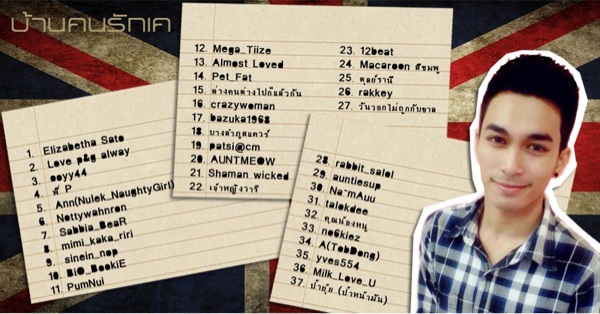 บ้านคนรักเค
1. Elizabetha Sato
2. Love p&g alway
3. ooyy44
4. P
5. Ann(Nulek_NaughtyGirl)
6. Nottywahnron
7. Sabbia_BeaR
8. mimi_kaka_riri
9. sinein_nop
10. BiO_BookiE
11. PumNui
12. Mega_Tiize
13. Almost Loved
14. Pet_Fat
15. ต่างคนต่างไปก็แล้วกัน
16. crazywoman
17. bazuka1968
18. บางลำภูสแควร์
19. patsi@cm
20. AUNTMEOW
21. Shaman wicked
22. เจ้าหญิงวารี
23. 12beat
24. Macaroon สีชมพู
25. ดุลย์รานี
26. rakkey
27. วันวอกไม่ถูกกับขาล
28. rabbit_salol
29. auntiesup
30. Na~mAuu
31. talokdee
32. คุณน้องหนู
33. no6kiez
34. A(TobDong)
35. yves554
36. Milk_Love_U
37. ป้ายุ้ย (ป้าหน้ามัน)